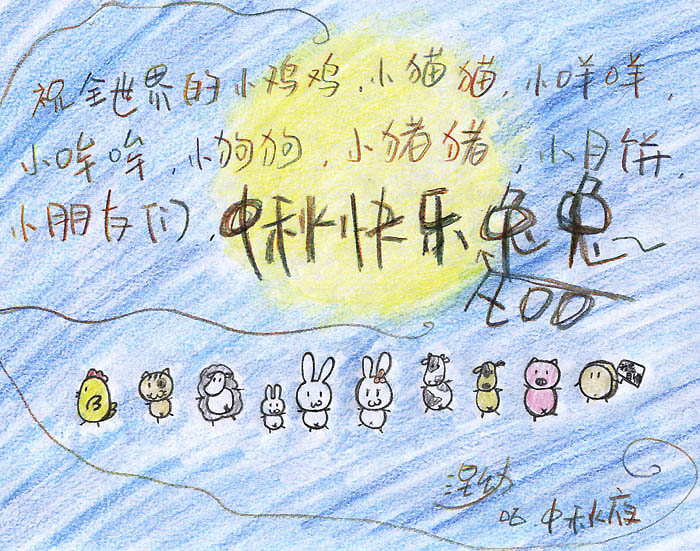 祝全世界的小鸡鸡，小猫猫，小咩咩，
小哞哞，小狗狗，小猪猪，小月饼，
小朋友们，中秋快乐兔兔~
too
06 中秋夜